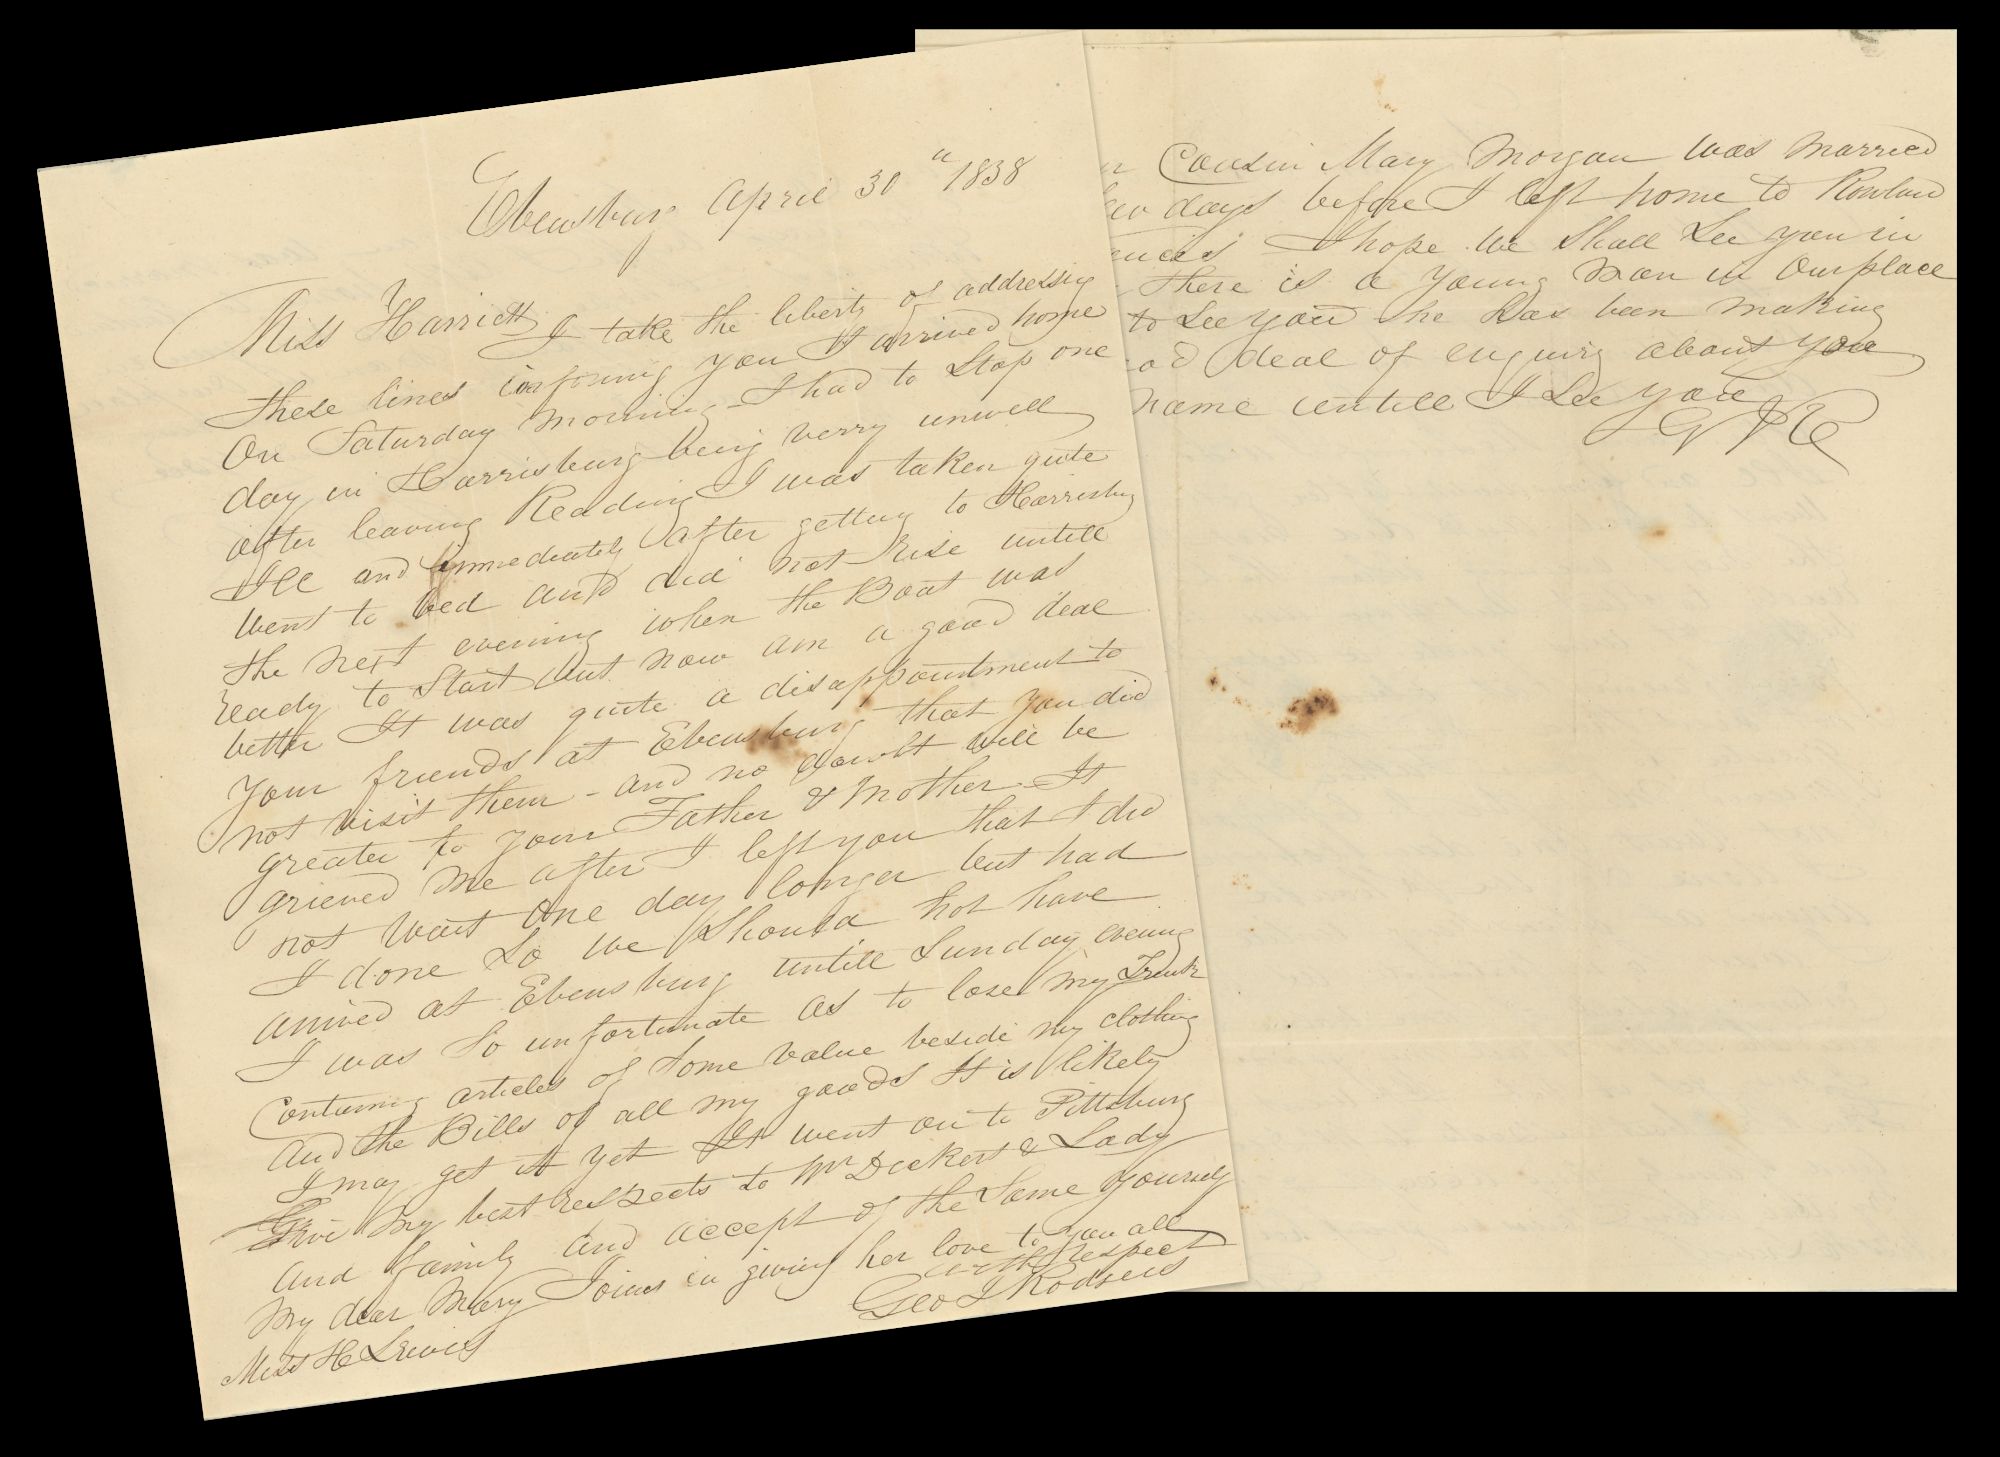 Ebensburg April 30th 1838
Miss Harriett
I take the liberty of addressing
these lines informing you I arrived home
On Saturday morning - I had to Stop one
day in Harrisburg being verry unwell
after leaving Reading I was taken quite
Ill and immediately after getting to Harrisburg
went to bed and did not rise untill
the next evening when the Boat was
ready to Start but now am a good deal
better It was quite a disappointment to
your friends at Ebensburg that you did
not visit them - and no doubt will be
greater to your Father & Mother - It
grieved me after I left you that I did
not wait One day longer but had
I done So we Should not have
arived at Ebensburg untill Sunday evening
I was So unfortunate as to lose my Trunk
Containing articles of Some value beside my clothing
and the Bills of all my goods It is likely
I may get it yet It went on to Pittsburg
Give my best respects to Mr Deckert & Lady
and family and accept of the Same yourself
My dear Mary Joines in giving her love to you all
with respect
Geo J Rodgers
Miss H Lewis
Cousin Mary Morgan was married
days before I left home to Rowland
I hope we Shall See you in
There is a young man in Our place
to See you he has been making
deal of enquiry about you
name untill I See you
G J R